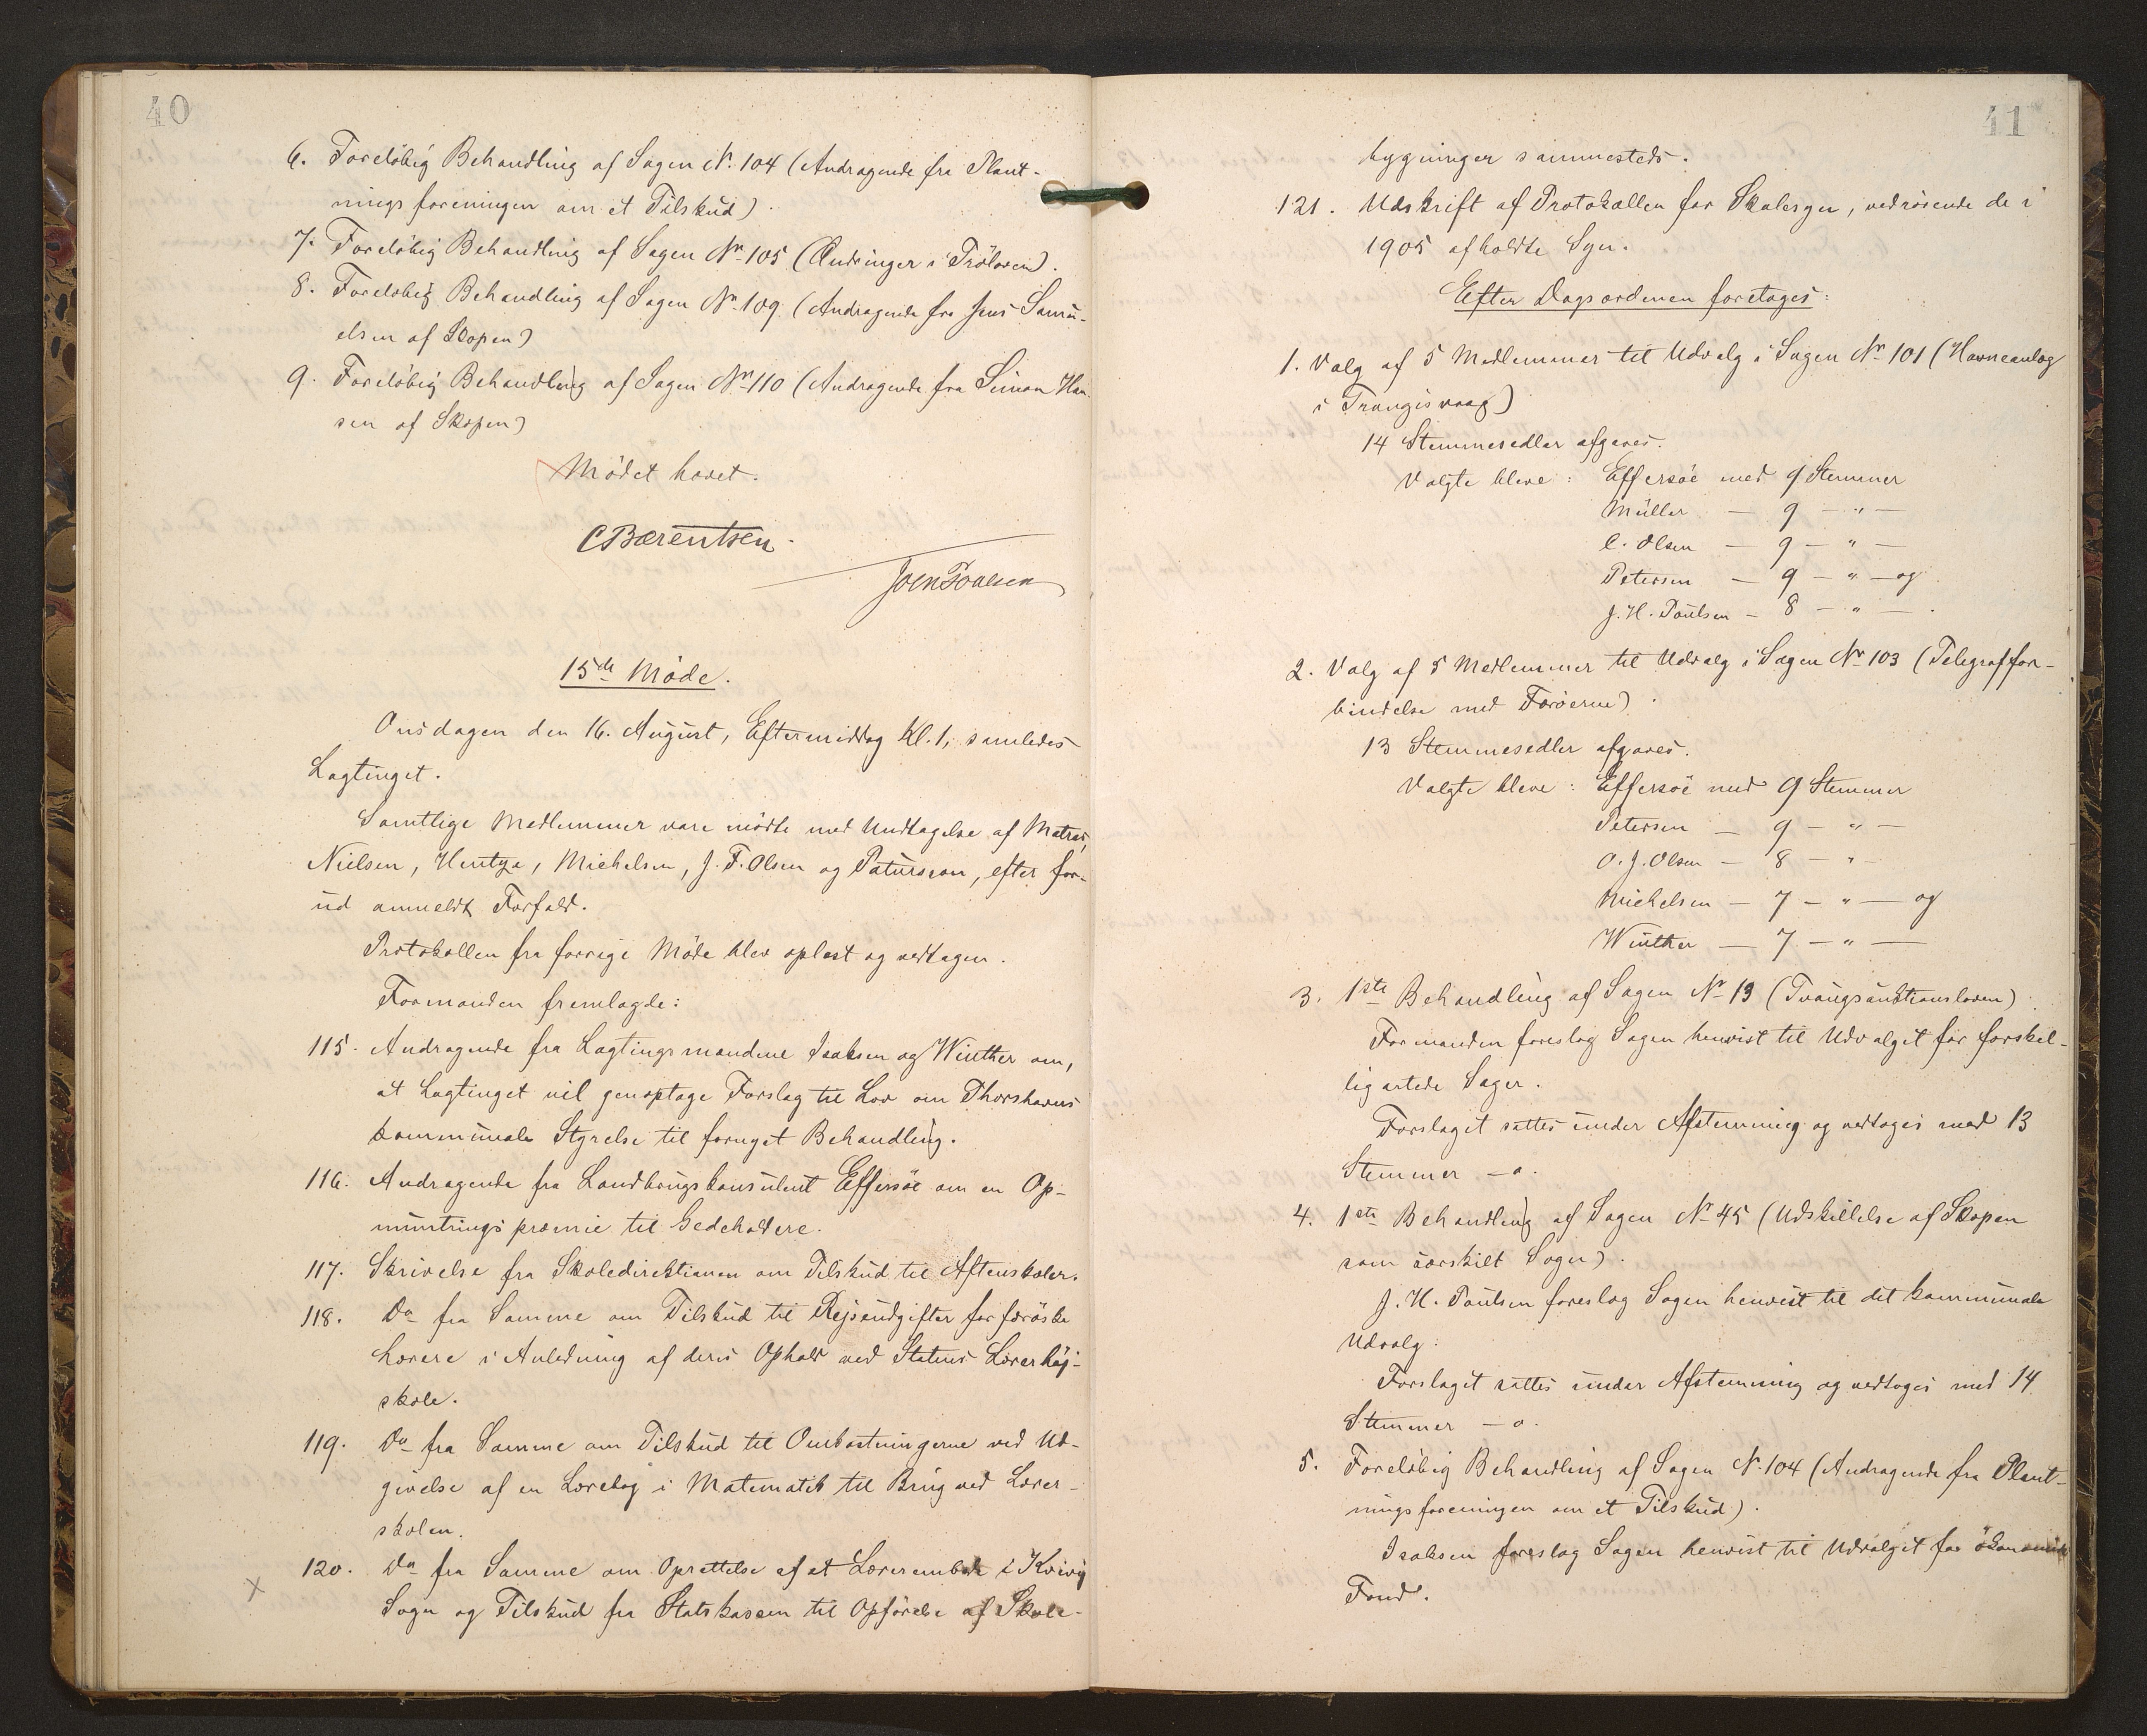 40
6. Foreløbig Behandling af Sagen Nr. 104 (Andragende fra Plant-
ningsforeningen om et Tilskud).
7. Foreløbig Behandling af Sagen Nr. 105 (Ændringer i Frøloven).
8. Foreløbig Behandling af Sagen Nr. 109 (Andragende fra Jens Samu-
elsen af Skopen)
9. Foreløbig Behandling af Sagen Nr. 110 (Andragende fra Simon Han-
sen af Skopen)
Mødet hævet.
C Bærentsen.
Joen Poulsen
15de Møde.
Onsdagen den 16. August, Eftermiddag Kl. 1, samledes
Lagtinget.
Samtlige Medlemmer vare mødte med Undtagelse af Matras,
Nielsen, Hentze, Michelsen, J. F. Olsen og Patursson, efter for-
ud anmeldt Forfald.
Protokollen fra forrige Møde blev oplæst og vedtagen.
Formanden fremlagde:
115. Andragende fra Lagtingsmændene Isaksen og Winther om,
at Lagtinget vil genoptage Forslag til Lov om Thorshavns
kommunale Styrelse til fornyet Behandling.
116. Andragende fra Landbrugskonsulent Effersöe om en Op-
muntringspræmie til Gedeholdere.
117. Skrivelse fra Skoledirektionen om Tilskud til Aftenskoler.
118. Do fra Samme om Tilskud til Rejseudgifter for færøske
Lærere i Anledning af deres Ophold ved Statens Lærerhøj-
skole.
119. Do fra Samme om Tilskud til Omkostningerne ved Ud-
givelse af en Lærebog i Matematik til Brug ved Lærer-
skolen.
120. Do fra Samme om Oprettelse af et Lærerembede i Kvivig
Sogn og Tilskud fra Statskassen til Opførelse af Skole-
41
bygninger sammesteds.
121. Udskrift af Protokollen for Skolesyn, vedrørende de i
1905 afholdte Syn.
Efter Dagsordenen foretoges:
1. Valg af 5 Medlemmer til Udvalg i Sagen Nr. 101 (Havneanlæg
i Trangisvaag)
14 Stemmesedler afgaves.
Valgte bleve: Effersöe med 9 Stemmer
Müller — 9 — " —
C. Olsen — 9 — " —
Petersen — 9 — " — og
J. H. Poulsen — 8 — " — .
2. Valg af 5 Medlemmer til Udvalg i Sagen Nr. 103 (Telegraffor-
bindelse med Færøerne).
13 Stemmesedler afgaves.
Valgte bleve: Effersöe med 9 Stemmer
Petersen — 9 — " —
O. J. Olsen — 8 — " —
Michelsen — 7 — " — og
Winther — 7 — " —
3. 1ste Behandling af Sagen Nr. 19 (Tvangsauktionsloven).
Formanden foreslog Sagen henvist til Udvalget for forskel-
ligartede Sager.
Forslaget sattes under Afstemning og vedtoges med 13
Stemmer — 0.
4. 1ste Behandling af Sagen Nr. 45 (Udskillelse af Skopen
som særskilt Sogn).
J. H. Poulsen foreslog Sagen henvist til det kommunale
Udvalg.
Forslaget sattes under Afstemning og vedtoges med 14
Stemmer — 0.
5. Foreløbig Behandling af Sagen Nr. 104 (Andragende fra Plant-
ningsforeningen om et Tilskud).
Isaksen foreslog Sagen henvist til Udvalget for økonomisk
Fond.